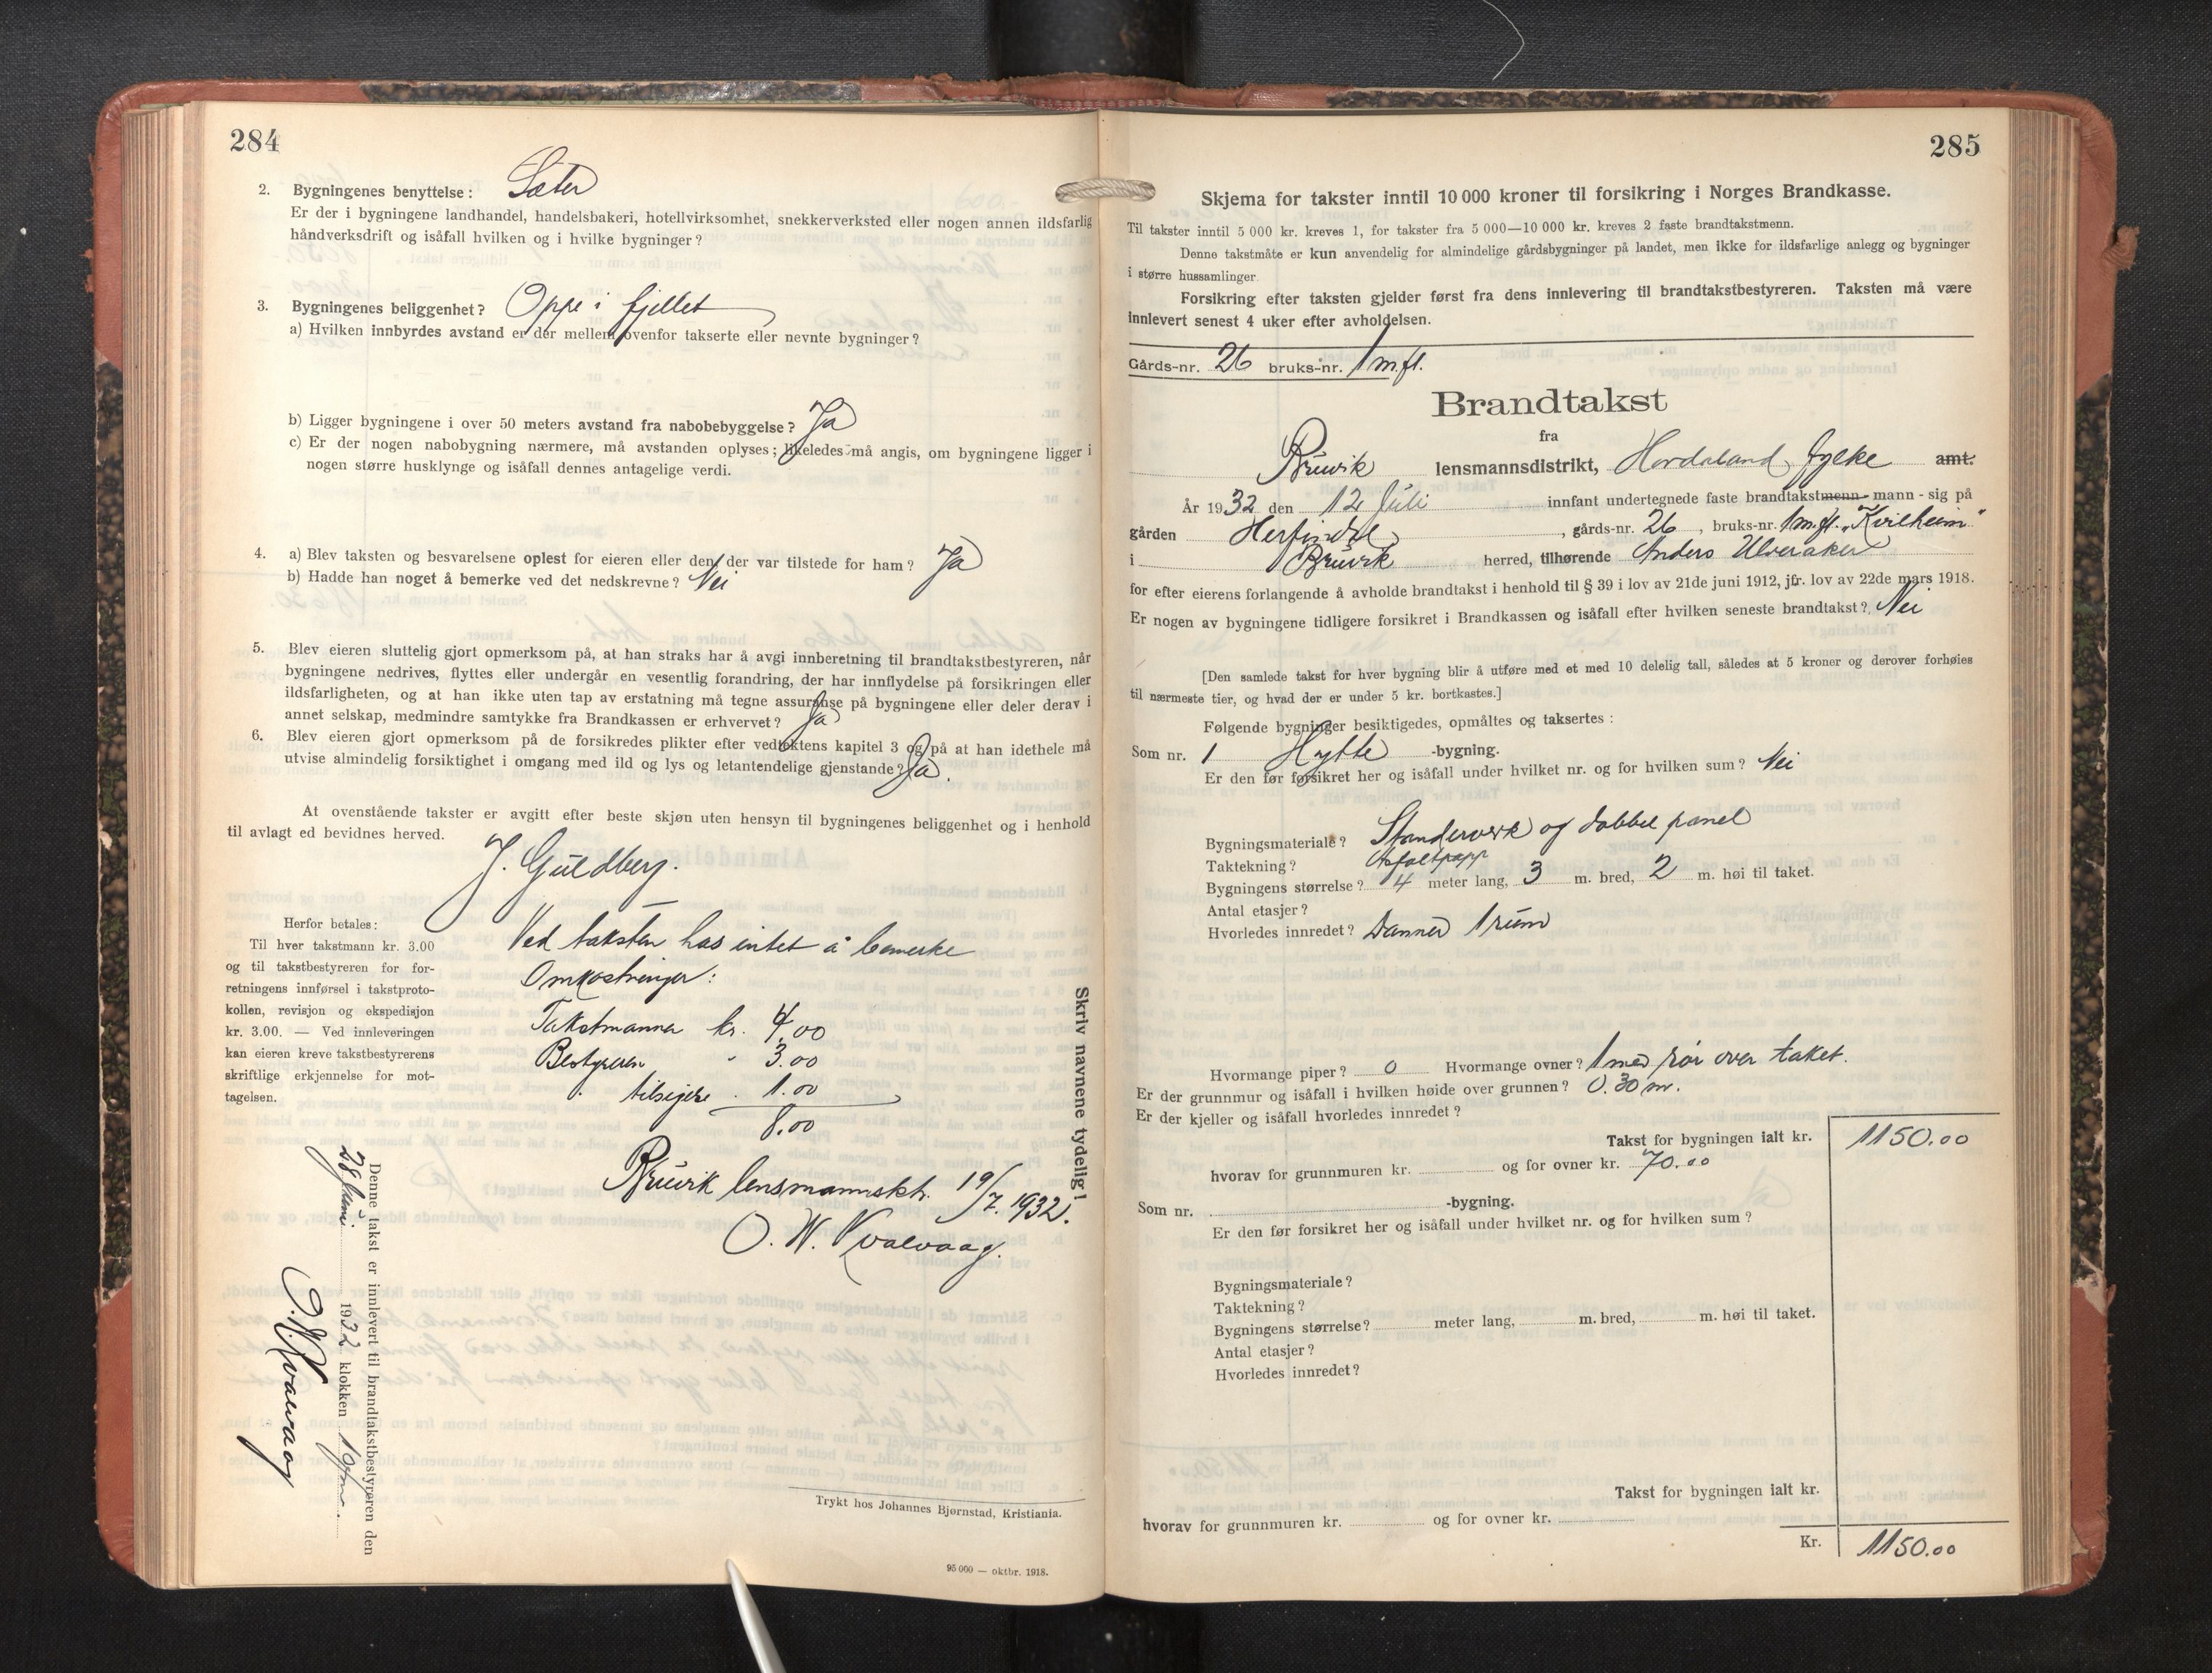 284
2. Bygningenes benyttelse: Sæter
Er der i bygningene landhandel, handelsbakeri, hotellvirksomhet, snekkerverksted eller nogen annen ildsfarlig
håndverksdrift og isåfall hvilken og i hvilke bygninger?
3. Bygningenes beliggenhet? Oppe i fjellet
a) Hvilken innbyrdes avstand er der mellem ovenfor takserte eller nevnte bygninger?
b) Ligger bygningene i over 50 meters avstand fra nabobebyggelse? Ja
c) Er der nogen nabobygning nærmere, må avstanden oplyses; likeledes må angis, om bygningene ligger i
nogen større husklynge og isåfall dennes antagelige verdi.
4. a) Blev taksten og besvarelsene oplest for eieren eller den, der var tilstede for ham? Ja
b) Hadde han noget å bemerke ved det nedskrevne? Nei
5. Blev eieren sluttelig gjort opmerksom på, at han straks har å avgi innberetning til brandtakstbestyreren, når
bygningene nedrives, flyttes eller undergår en vesentlig forandring, der har innflydelse på forsikringen eller
ildsfarligheten, og at han ikke uten tap av erstatning må tegne assuranse på bygningene eller deler derav i
annet selskap, medmindre samtykke fra Brandkassen er erhvervet? Ja
6. Blev eieren gjort opmerksom på de forsikredes plikter efter vedtektens kapitel 3 og på at han idethele må
utvise almindelig forsiktighet i omgang med ild og lys og letantendelige gjenstande? Ja.
At ovenstående takster er avgitt efter beste skjøn uten hensyn til bygningenes beliggenhet og i henhold
til avlagt ed bevidnes herved.
J. Guldberg.
Herfor betales:
Til hver takstmann kr. 3.00
og til takstbestyreren for for-
retningens innførsel i takstproto-
kollen, revisjon og ekspedisjon
kr. 3.00. — Ved innleveringen
kan eieren kreve takstbestyrerens
skriftlige erkjennelse for mot-
tagelsen.
Ved taksten has intet å bemerke
Omkostninger:
Takstmannen kr. 4.00
Bestyreren " 3.00
" 1.00
8.00
Bruvik lensmannsktr. 19/7. 1932.
O. W. Kvalvaag.
Skriv navnene tydelig!
Denne takst er innlevert til brandtakstbestyreren den
28 1932 klokken
O. W. Kvalvaag
Trykt hos Johannes Bjørnstad, Kristiania.
95 000 — oktbr. 1918.
285
Skjema for takster inntil 10 000 kroner til forsikring i Norges Brandkasse.
Til takster inntil 5 000 kr. kreves 1, for takster fra 5 000—10 000 kr. kreves 2 faste brandtakstmenn.
Denne takstmåte er kun anvendelig for almindelige gårdsbygninger på landet, men ikke for ildsfarlige anlegg og bygninger
i større hussamlinger.
Forsikring efter taksten gjelder først fra dens innlevering til brandtakstbestyreren. Taksten må være
innlevert senest 4 uker efter avholdelsen.
Gårds-nr. 26 bruks-nr. 1 m.fl.
Brandtakst
fra
Bruvik lensmannsdistrikt, Hordaland fylke amt.
År 1932 den 12 Juli innfant undertegnede faste brandtakstmenn - mann - sig på
gården Herfindal, gårds-nr. 26, bruks-nr. 1 m.fl. "Kvilheim"
i Bruvik herred, tilhørende Anders Ulveraker
for efter eierens forlangende å avholde brandtakst i henhold til § 39 i lov av 21de juni 1912, jfr. lov av 22de mars 1918.
Er nogen av bygningene tidligere forsikret i Brandkassen og isåfall efter hvilken seneste brandtakst? Nei
[Den samlede takst for hver bygning blir å utføre med et med 10 delelig tall, således at 5 kroner og derover forhøies
til nærmeste tier, og hvad der er under 5 kr. bortkastes.]
Følgende bygninger besiktigedes, opmåltes og taksertes:
Som nr. 1 Hytte -bygning.
Er den før forsikret her og isåfall under hvilket nr. og for hvilken sum? Nei
Bygningsmateriale? Standerverk og dobbel panel
Taktekning? Asfaltpapp
Bygningens størrelse? 4 meter lang, 3 m. bred, 2 m. høi til taket.
Antal etasjer?
Hvorledes innredet? Danner 1 rum
Hvormange piper? 0 Hvormange ovner? 1 med rør over taket.
Er der grunnmur og isåfall i hvilken høide over grunnen? 0.30 m.
Er der kjeller og isåfall hvorledes innredet?
Takst for bygningen ialt kr. 1150.00
hvorav for grunnmuren kr. og for ovner kr. 70.00
Som nr. -bygning.
Er den før forsikret her og isåfall under hvilket nr. og for hvilken sum?
Bygningsmateriale?
Taktekning?
Bygningens størrelse? meter lang, m. bred, m. høi til taket.
Antal etasjer?
Hvorledes innredet?
Takst for bygningen ialt kr.
hvorav for grunnmuren kr. og for ovner kr.
Kr. 1150.00